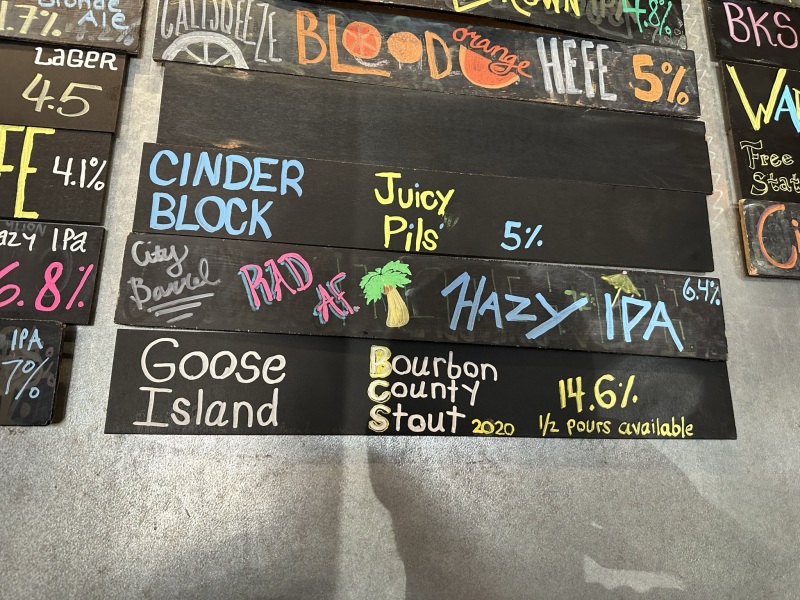 Blonde
Ale
LAGER
4.5
4.1%
IPA
6.8%
IPA
7%
4.8%
CALI SQUEEZE BLOOD orange HEFE 5%
CINDER Juicy
BLOCK Pils 5%
City
Barrel RAD AF HAZY IPA 6.4%
Goose Bourbon
Island County 14.6%
Stout 2020 1/2 pours available
BKS
Free
Stat